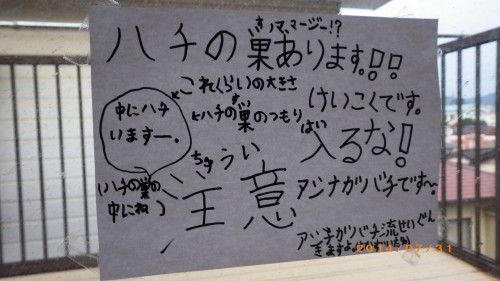 すノマ マージー!?
ハチの巣あります!!!
これくらいの大きさ
←ハチの巣のつもり
す
けいこくです。
中にハチ
いますー。
はい
入るな!
ちゅうい
注意
(ハチの巣の
中にね)
アシナガバチです〜。
アシナガバチ流せいぐん
きますよ
31